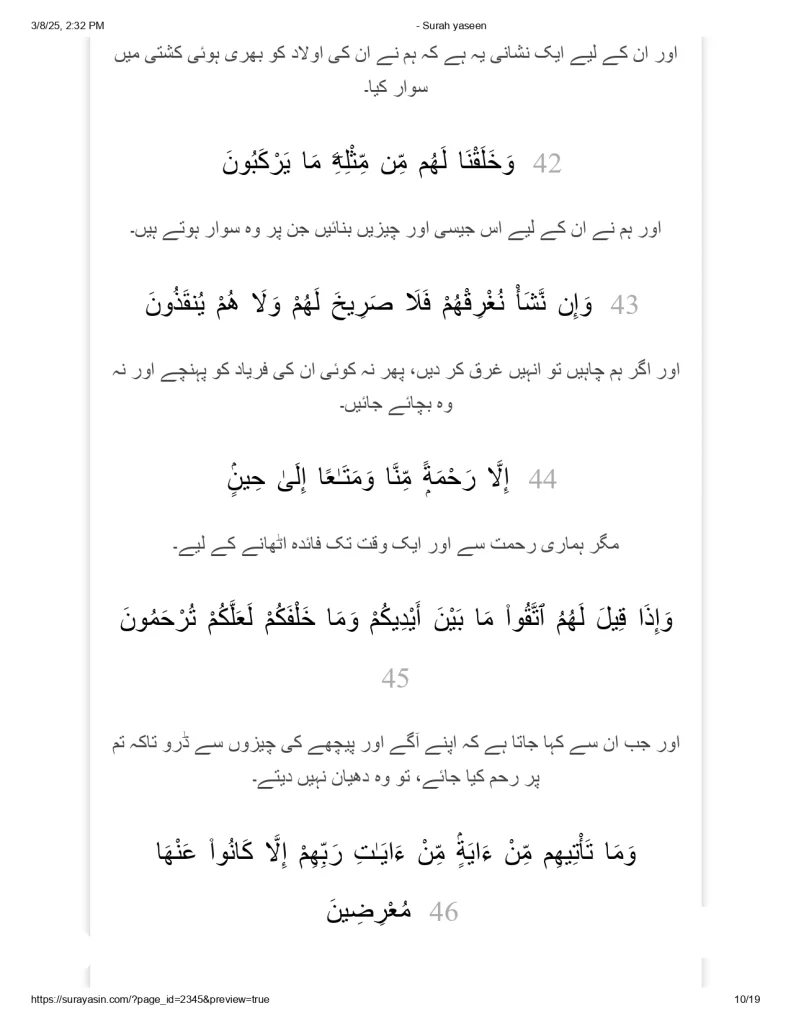 3/8/25, 2:32 PM
- Surah yaseen
اور ان کے لیے ایک نشانی یہ ہے کہ ہم نے ان کی اولاد کو بھری ہوئی کشتی میں
سوار کیا۔
وَخَلَقْنَا لَهُم مِّن مِّثْلِهِۦ مَا يَرْكَبُونَ 42
اور ہم نے ان کے لیے اس جیسی اور چیزیں بنائیں جن پر وہ سوار ہوتے ہیں۔
وَإِن نَّشَأْ نُغْرِقْهُمْ فَلَا صَرِيخَ لَهُمْ وَلَا هُمْ يُنقَذُونَ 43
اور اگر ہم چاہیں تو انہیں غرق کر دیں، پھر نہ کوئی ان کی فریاد کو پہنچے اور نہ
وہ بچائے جائیں۔
إِلَّا رَحْمَةًۭ مِّنَّا وَمَتَـٰعًا إِلَىٰ حِينٍۢ 44
مگر ہماری رحمت سے اور ایک وقت تک فائدہ اٹھانے کے لیے۔
وَإِذَا قِيلَ لَهُمُ ٱتَّقُوا۟ مَا بَيْنَ أَيْدِيكُمْ وَمَا خَلْفَكُمْ لَعَلَّكُمْ تُرْحَمُونَ
45
اور جب ان سے کہا جاتا ہے کہ اپنے آگے اور پیچھے کی چیزوں سے ڈرو تاکہ تم
پر رحم کیا جائے، تو وہ دھیان نہیں دیتے۔
وَمَا تَأْتِيهِم مِّنْ ءَايَةٍۢ مِّنْ ءَايَـٰتِ رَبِّهِمْ إِلَّا كَانُوا۟ عَنْهَا
مُعْرِضِينَ 46
https://surayasin.com/?page_id=2345&preview=true
10/19